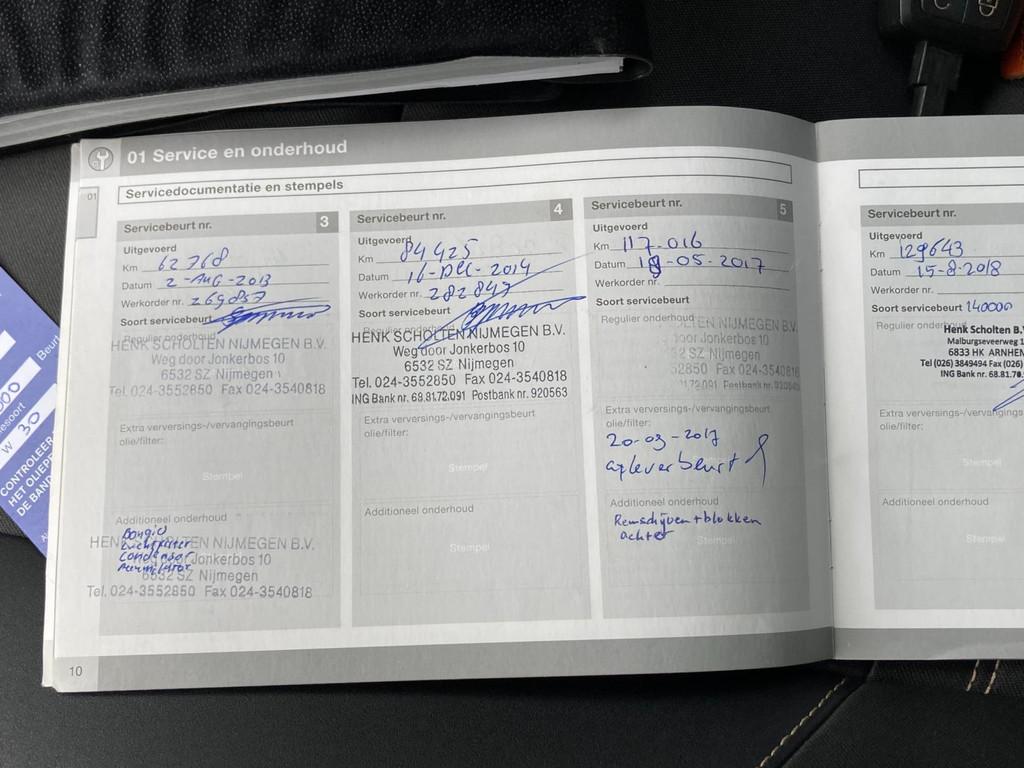 01 Service en onderhoud
01
Servicedocumentatie en stempels
Servicebeurt nr. 3
Uitgevoerd
Km 62768
Datum 2-AUG-2013
Werkorder nr. 269857
Soort servicebeurt
Regulier onderhoud
HENK SCHOLTEN NIJMEGEN B.V.
Weg door Jonkerbos 10
6532 SZ Nijmegen
Tel. 024-3552850 Fax 024-3540818
Extra verversings-/vervangingsbeurt
olie/filter:
Stempel
Additioneel onderhoud
Bougie
Luchtfilter
Condensor
HENK SCHOLTEN NIJMEGEN B.V.
Weg door Jonkerbos 10
6532 SZ Nijmegen
Tel. 024-3552850 Fax 024-3540818
10
Servicebeurt nr. 4
Uitgevoerd
Km 84425
Datum 16-Dec-2014
Werkorder nr. 282847
Soort servicebeurt
Regulier onderhoud
HENK SCHOLTEN NIJMEGEN B.V.
Weg door Jonkerbos 10
6532 SZ Nijmegen
Tel. 024-3552850 Fax 024-3540818
ING Bank nr. 68.81.72.091 Postbank nr. 920563
Extra verversings-/vervangingsbeurt
olie/filter:
Stempel
Additioneel onderhoud
Stempel
Servicebeurt nr. 5
Uitgevoerd
Km 117.016
Datum 18-05-2017
Werkorder nr.
Soort servicebeurt
Regulier onderhoud
LTEN NIJMEGEN B.V.
oor Jonkerbos 10
32 SZ Nijmegen
52850 Fax 024-3540818
72.091 Postbank nr. 92056
Extra verversings-/vervangingsbeurt
olie/filter:
20-03-2017
afleverbeurt
Stempel
Additioneel onderhoud
Remschijven + blokken
achter
Stempel
Servicebeurt nr.
Uitgevoerd
Km 129643
Datum 15-8-2018
Werkorder nr.
Soort servicebeurt 140000
Regulier onderhoud
Henk Scholten B.V
Malburgseveerweg 1
6833 HK ARNHEM
Tel (026) 3849494 Fax (026)
ING Bank nr. 68.81.70.
Extra verversings-/vervangingsbeurt
olie/filter:
Stempel
Additioneel onderhoud
Stempel
Beurt
000
esoort
W 30
CONTROLEER
HET OLIEPE
DE BAND